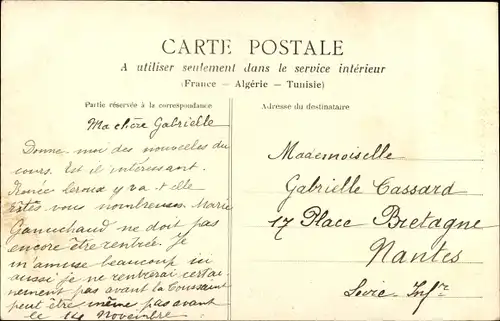 CARTE POSTALE
A utiliser seulement dans le service intérieur
(France — Algérie — Tunisie)
Partie réservée à la correspondance
Ma chère Gabrielle
Donne moi des nouvelles du
cours. Est il intéressant.
Renée Leroux y va t elle
Êtes vous nombreuses. Marie
Ganuchaud ne doit pas
encore être rentrée. Je
m'amuse beaucoup ici
aussi je ne rentrerai certai-
nement pas avant la Toussaint
peut être même pas avant
le 14 Novembre
Adresse du destinataire
Mademoiselle
Gabrielle Cassard
17 Place Bretagne
Nantes
Loire Infre